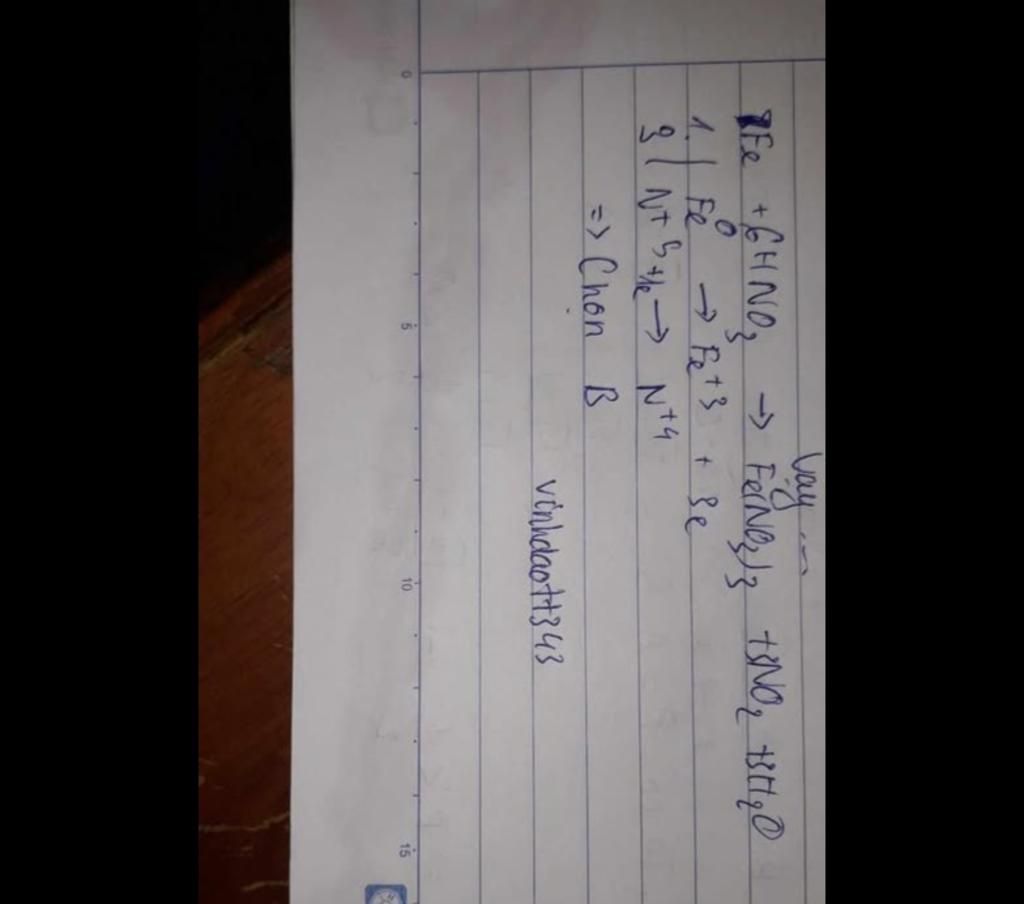 Vậy
Fe + 6HNO3 → Fe(NO3)3 + 3NO2 + 3H2O
1 | Fe0 → Fe+3 + 3e
3 | N+5 +1e → N+4
=> Chọn B
vinhdaott343
0 5 10 15